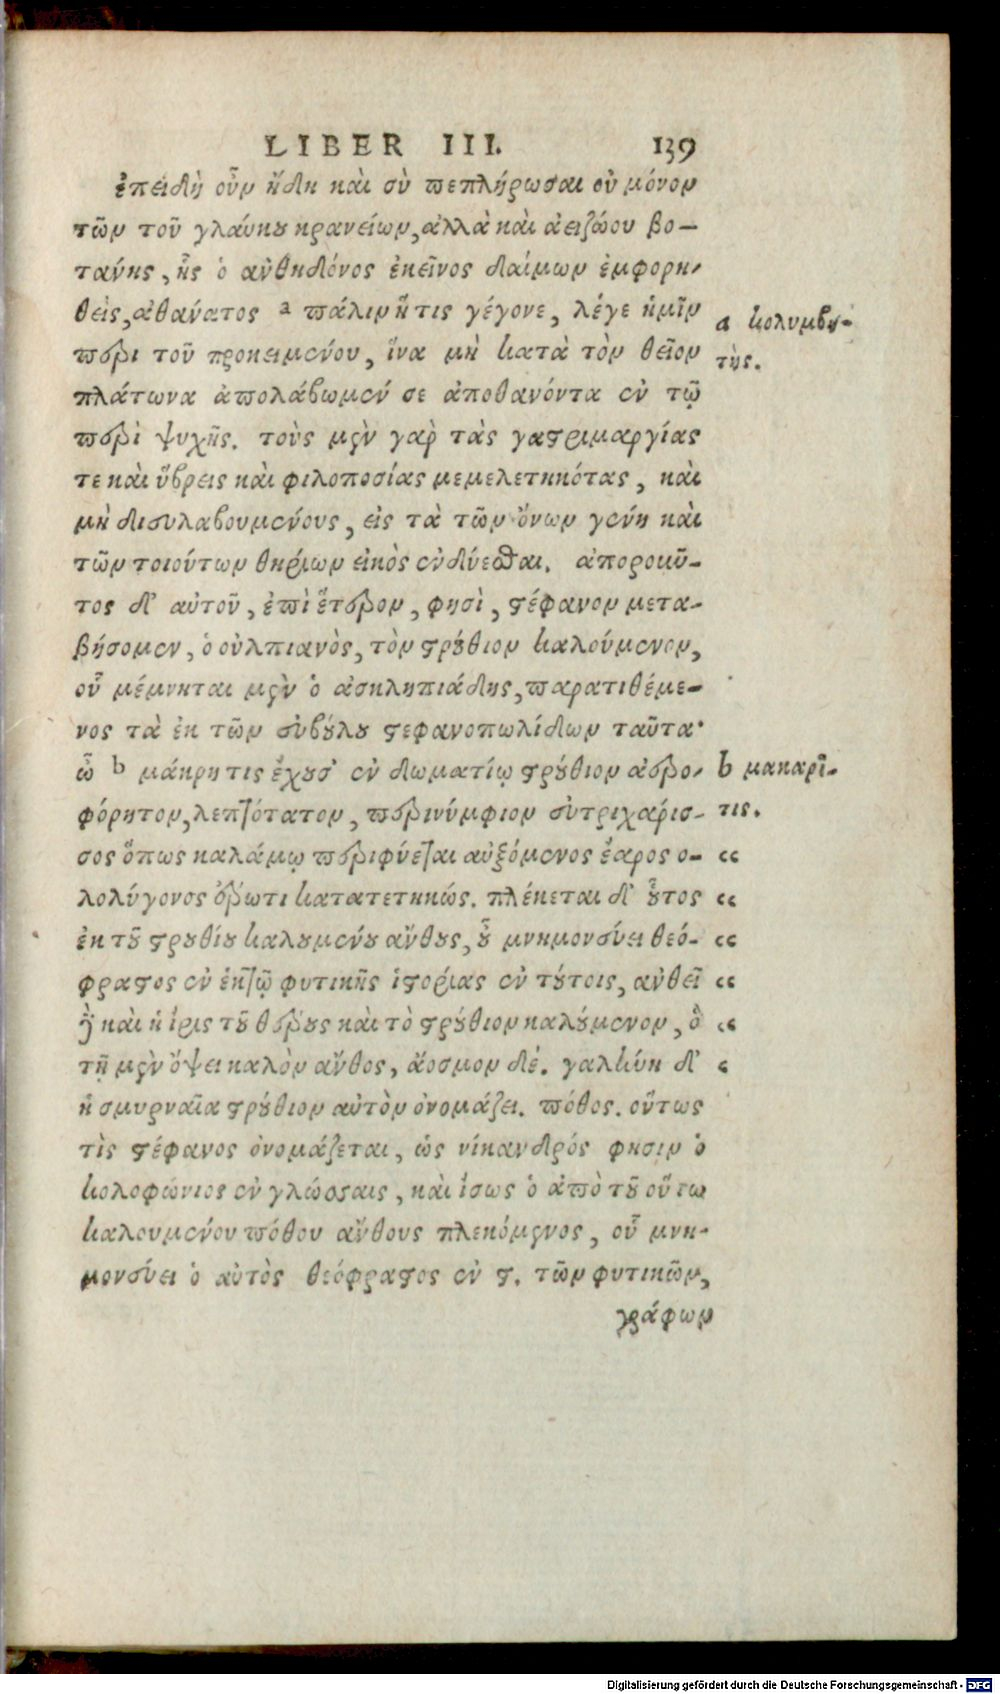 LIBER III. 139
ἐπειδὴ οὖν ἤδη καὶ σὺ πεπλήρωσαι οὐ μόνον
τῶν τοῦ γλαύκου κρανείων, ἀλλὰ καὶ ἀειζώου βο-
τάνης, ἧς ὁ ἀνθηδόνος ἐκεῖνος δαίμων ἐμφορη-
θεὶς, ἀθανάτος a πάλιν ἤτις γέγονε, λέγε ἡμῖν
a κολυμβη-
περι τοῦ προκειμένου, ἵνα μὴ κατὰ τὸν θεῖον
τὴς.
πλάτωνα ἀπολάβωμεν σε ἀποθανόντα ἐν τῷ
περὶ ψυχῆς. τοὺς μὲν γὰρ τὰς γαστριμαργίας
τε καὶ ὕβρεις καὶ φιλοποσίας μεμελετηκότας, καὶ
μὴ δισυλαβουμένους, εἰς τὰ τῶν ὄνων γένη καὶ
τῶν τοιούτων θηρίων εἰκὸς ἐνδύεσθαι. ἀποροιῦ-
τος δ' αὐτοῦ, ἐπὶ ἕτερον, φησὶ, στέφανον μετα-
βήσομεν, ὁ οὐλπιανὸς, τὸν στρούθιον καλούμενον,
οὗ μέμνηται μὲν ὁ ἀσκληπιάδης, παρατιθέμε-
νος τὰ ἐκ τῶν εὐβούλου στεφανοπωλίδων ταῦτα·
ὦ b μάκρητις ἔχουσ' ἐν δωματίῳ στρούθιον ἀερο-
b μακαρῖ-
φόρητον, λεπτότατον, περινύμφιον εὐτριχάρισ-
τις.
σος ὅπως καλάμῳ περιφύεται αὐξόμενος ἔαρος ὀ- “
λολύγονος ἔρωτι κατατετηκώς. πλέκεται δ' οὗτος “
ἐκ τοῦ στρουθίου καλουμένου ἄνθους, οὗ μνημονεύει θεό- “
φραστος ἐν ἕκτῳ φυτικῆς ἱστορίας ἐν τούτοις, ἀνθεῖ “
δὲ καὶ ἡ ἶρις τοῦ θέρους καὶ τὸ στρούθιον καλούμενον, ὃ “
τῇ μὲν ὄψει καλὸν ἄνθος, ἄοσμον δέ. γαλκύη δ' ‘
ἡ σμυρναῖα στρούθιον αὐτὸν ὀνομάζει. πόθος. οὕτως
τὶς στέφανος ὀνομάζεται, ὡς νίκανδρός φησιν ὁ
κολοφώνιος ἐν γλώσσαις, καὶ ἴσως ὁ ἀπὸ τοῦ οὕτω
καλουμένου πόθου ἄνθους πλεκόμενος, οὗ μνη-
μονεύει ὁ αὐτὸς θεόφραστος ἐν ϛ. τῶν φυτικῶν,
γράφων
Digitalisierung gefördert durch die Deutsche Forschungsgemeinschaft - DFG